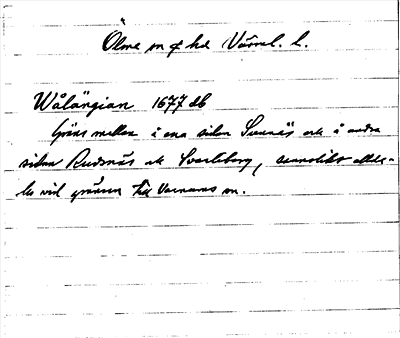 Ölme sn o hd Värml. l.
Wålängian 1677 db
Gräns mellan å ena sidan Svenäs och å andra
sidan Rudsnäs och Svarteborg, sannolikt allde-
les vid gränsen till Varnums sn.